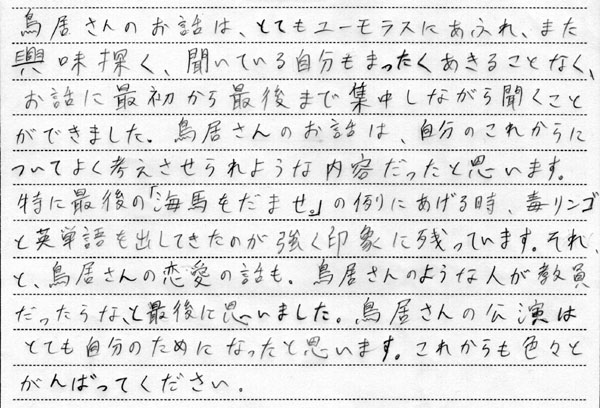 鳥居さんのお話は、とてもユーモラスにあふれ、また
興味探く、聞いている自分もまったくあきることなく、
お話に最初から最後まで集中しながら聞くこと
ができました。鳥居さんのお話は、自分のこれからに
ついてよく考えさせられような内容だったと思います。
特に最後の「海馬をだませ。」の例にあげる時、毒リンゴ
と英単語を出してきたのが強く印象に残っています。それ
と、鳥居さんの恋愛の話も。鳥居さんのような人が教員
だったらな、と最後に思いました。鳥居さんの公演は
とても自分のためになったと思います。これからも色々と
がんばってください。